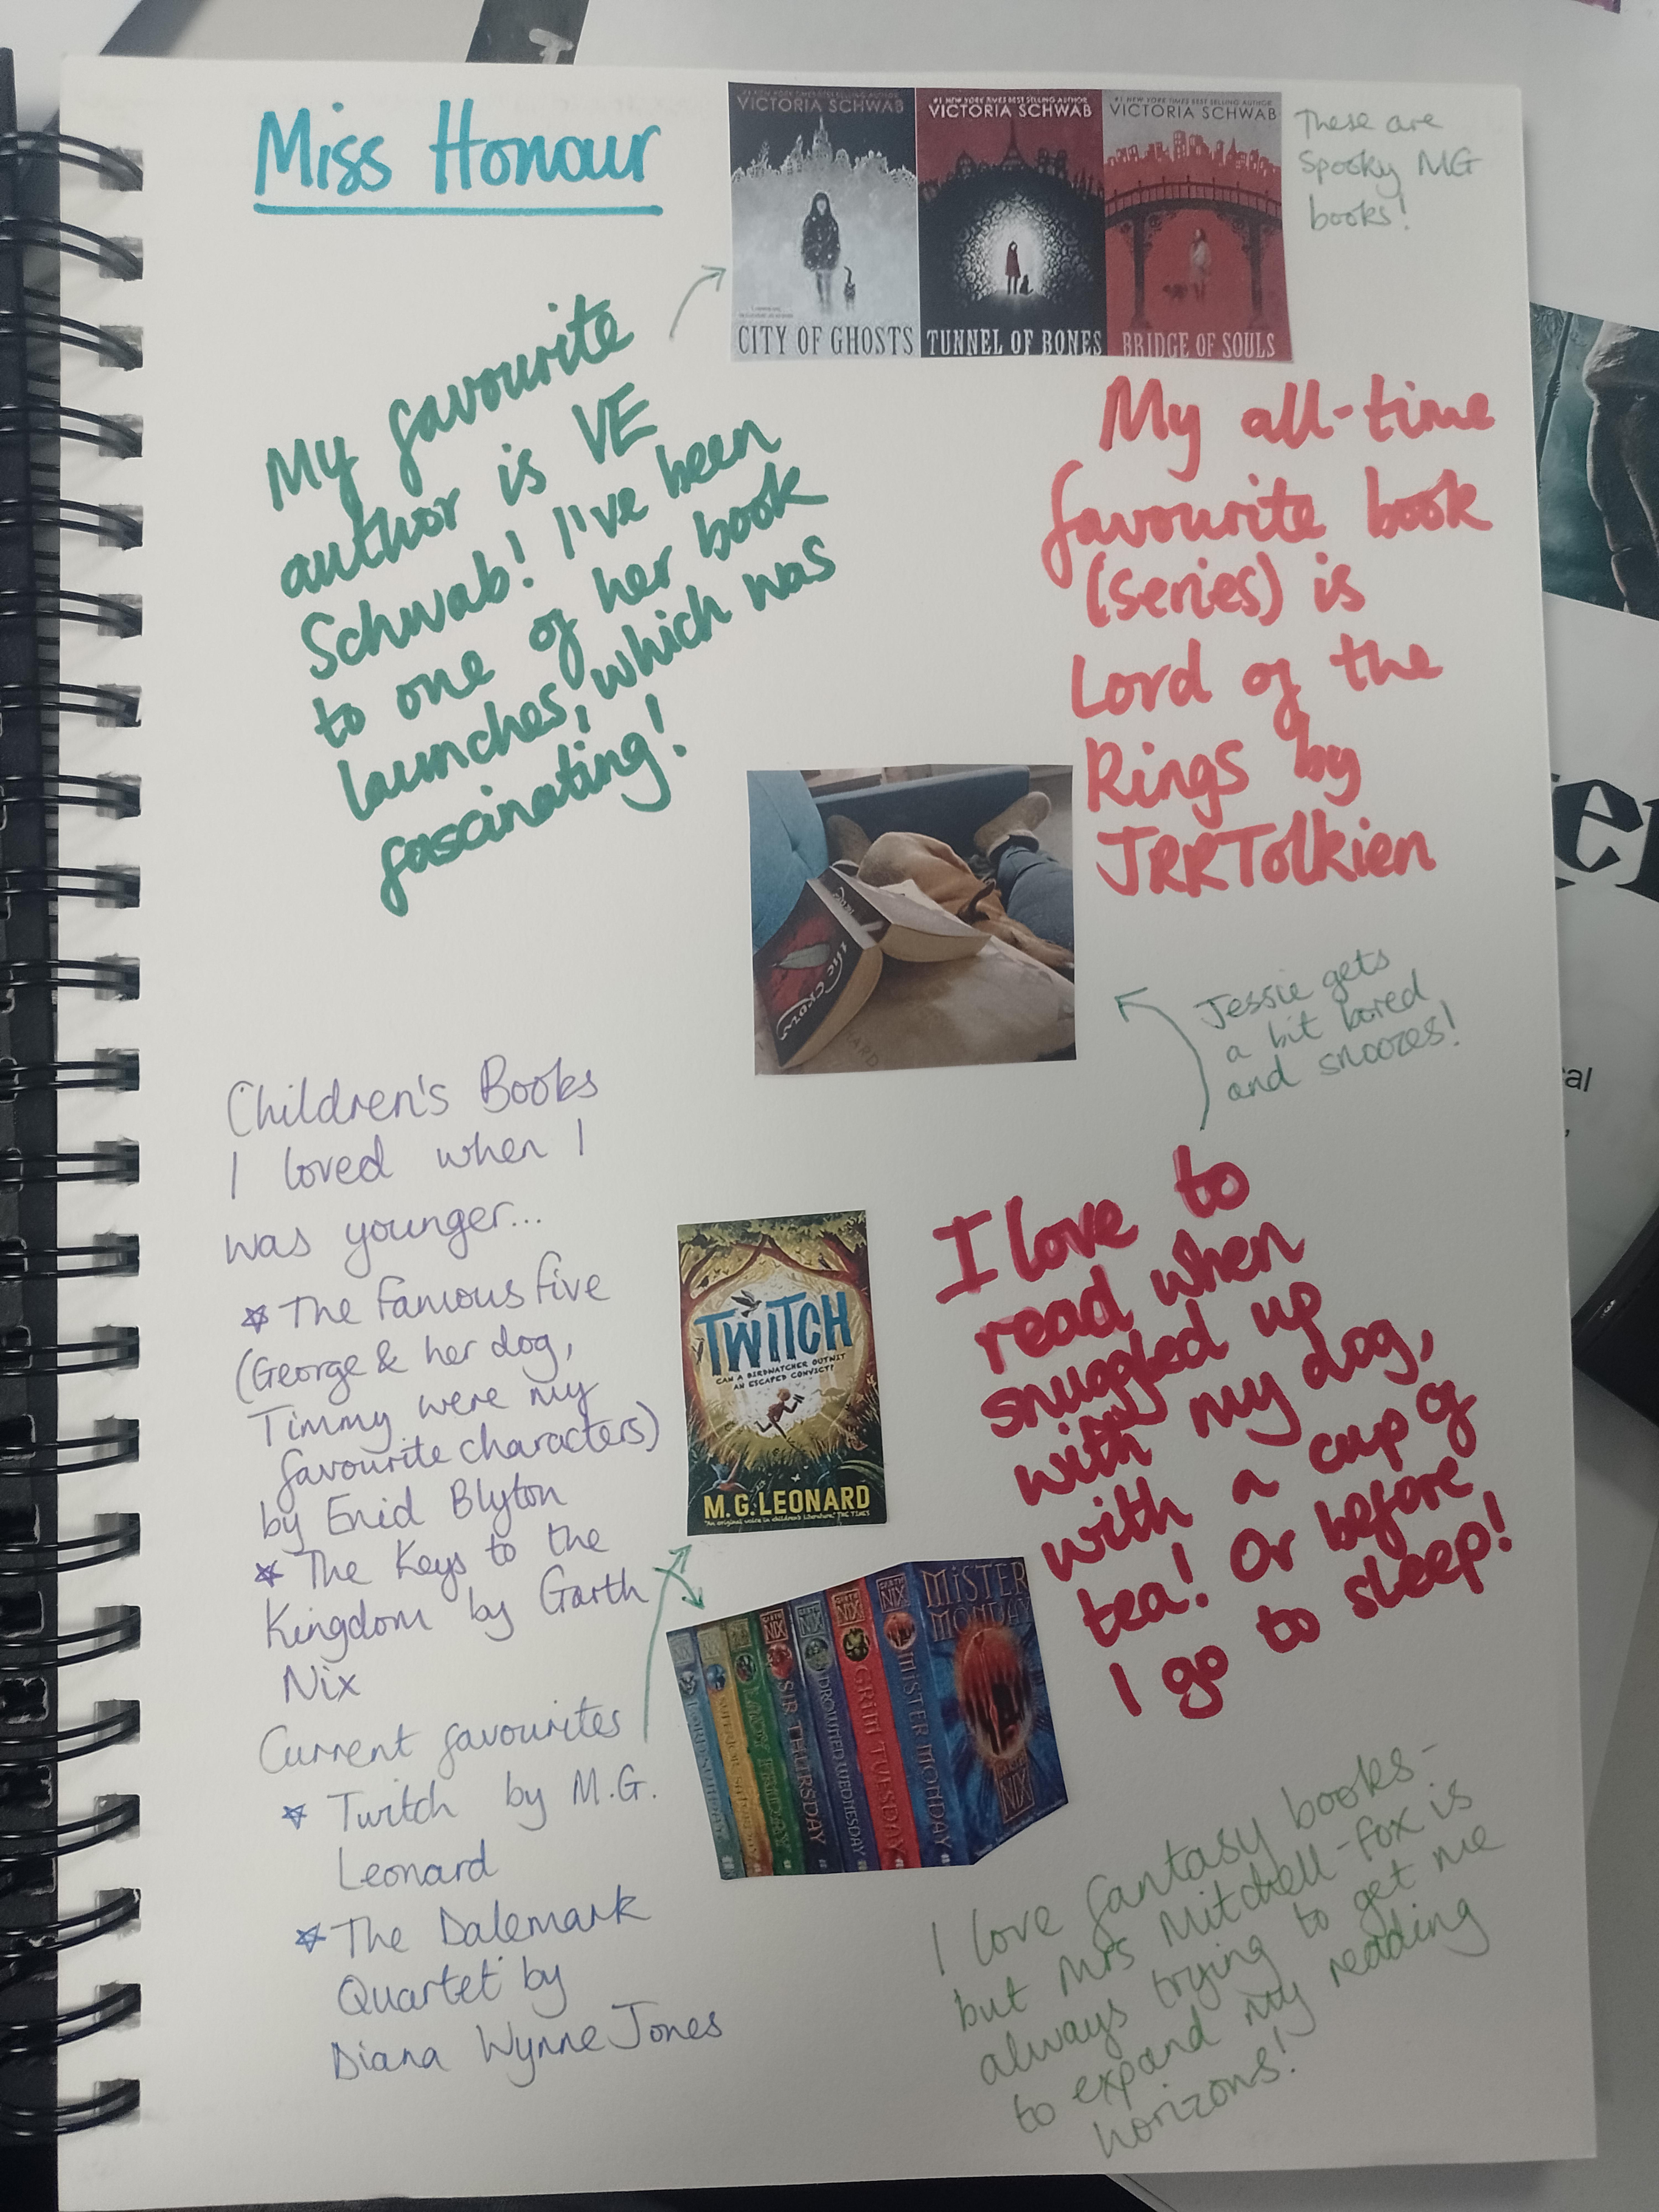 Miss Honour
#1 NEW YORK TIMES BEST SELLING AUTHOR
VICTORIA SCHWAB
CITY OF GHOSTS
#1 NEW YORK TIMES BEST SELLING AUTHOR
VICTORIA SCHWAB
TUNNEL OF BONES
#1 NEW YORK TIMES BEST SELLING AUTHOR
VICTORIA SCHWAB
BRIDGE OF SOULS
These are
Spooky MG
books!
My favourite
author is VE
Schwab! I've been
to one of her book
launches, which was
fascinating!
My all-time
favourite book
(series) is
Lord of the
Rings by
JRRTolkien
Jessie gets
a bit bored
and snoozes!
Children's Books
I loved when I
was younger...
The Famous Five
(George & her dog,
Timmy were my
favourite characters)
by Enid Blyton
The Keys to the
Kingdom by Garth
Nix
Current favourites
Twitch by M.G.
Leonard
The Dalemark
Quartet by
Diana Wynne Jones
TWITCH
CAN A BIRDWATCHER OUTWIT
AN ESCAPED CONVICT?
M.G. LEONARD
"An original voice in children's literature." THE TIMES
I love to
read when
snuggled up
with my dog,
with a cup of
tea! Or before
I go to sleep!
LADY FRIDAY
SIR THURSDAY
DROWNED WEDNESDAY
GRIM TUESDAY
MISTER MONDAY
MISTER
MONDAY
GARTH
NIX
I love fantasy books-
but Mrs Mitchell-fox is
always trying to get me
to expand my reading
horizons!